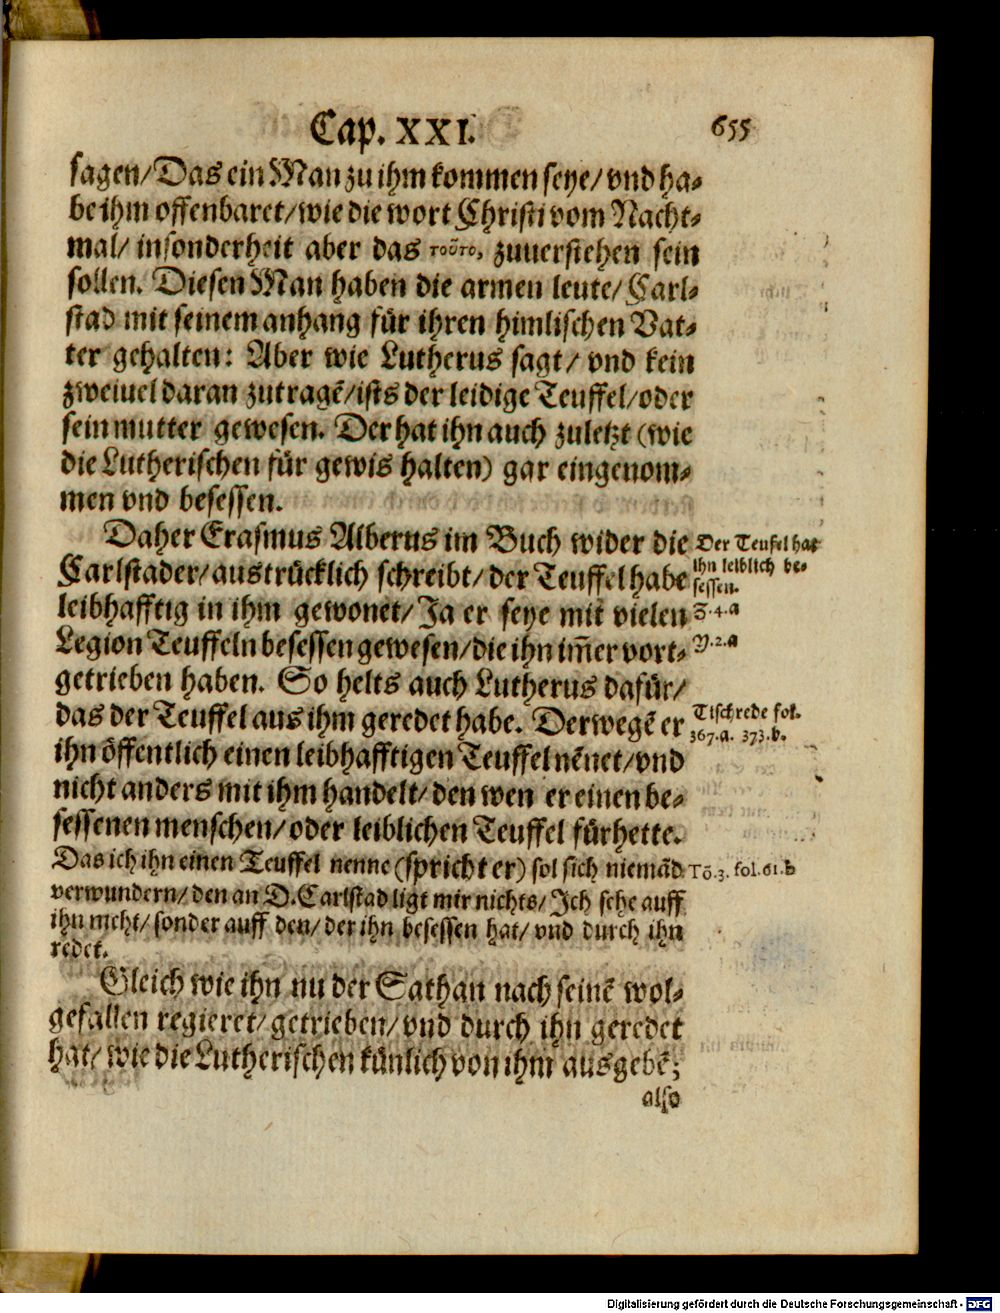 Cap. XXI. 655
sagen/Das ein Man zu ihm kommen seye/vnd ha-
be ihm offenbaret/wie die wort Christi vom Nacht-
mal/ insonderheit aber das τοῦτο, zuuerstehen sein
sollen. Diesen Man haben die armen leute/Carl-
stad mit seinem anhang für ihren himlischen Vat-
ter gehalten: Aber wie Lutherus sagt/ vnd kein
zweiuel daran zutragẽ/ists der leidige Teuffel/oder
sein mutter gewesen. Der hat ihn auch zuletzt (wie
die Lutherischen für gewis halten) gar eingenom-
men vnd besessen.
Daher Erasmus Alberus im Buch wider die
Carlstader/austrücklich schreibt/der Teuffel habe
leibhafftig in ihm gewonet/Ja er seye mit vielen
Legion Teuffeln besessen gewesen/die ihn im̃er vort-
getrieben haben. So helts auch Lutherus dafür/
das der Teuffel aus ihm geredet habe. Derwegẽ er
ihn öffentlich einen leibhafftigen Teuffel nẽnet/vnd
nicht anders mit ihm handelt/den wen er einen be-
sessenen menschen/oder leiblichen Teuffel fürhette.
Das ich ihn einen Teuffel nenne (spricht er) sol sich niemãd
verwundern/den an D. Carlstad ligt mir nichts/Jch sehe auff
ihn nicht/sonder auff den/der ihn besessen hat/vnd durch ihn
redet.
Gleich wie ihn nu der Sathan nach seinẽ wol-
gefallen regieret/getrieben/vnd durch ihn geredet
hat/wie die Lutherischen künlich von ihm ausgebẽ;
also
Der Teufel hat
ihn leiblich be-
sessen.
Z.4.a
Y.2.a
Tischrede fol.
367.a. 373.b.
Tõ.3. fol.61.b
Digitalisierung gefördert durch die Deutsche Forschungsgemeinschaft - DFG